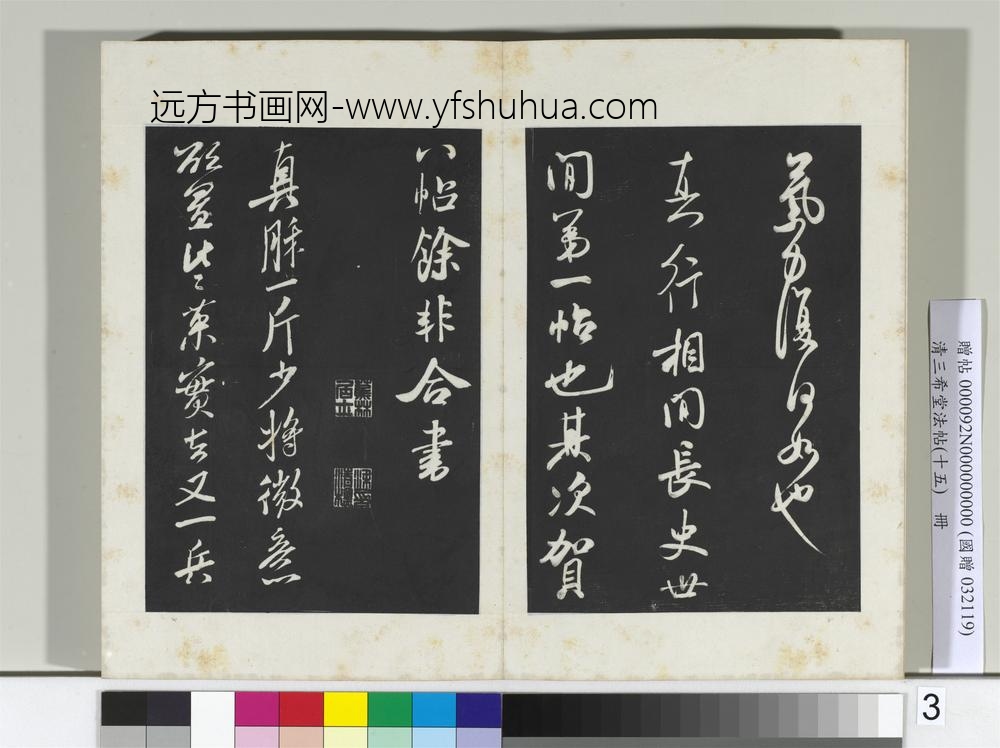 远方书画网-www.yfshuhua.com
氣力復何如也
真行相間長史世
間第一帖也其次賀
八帖餘非合書
真酥一斤少將微意
欲置些菓實去又一兵
贈帖 0000092N000000000 (國贈 032119)
清三希堂法帖(十五) 冊
3